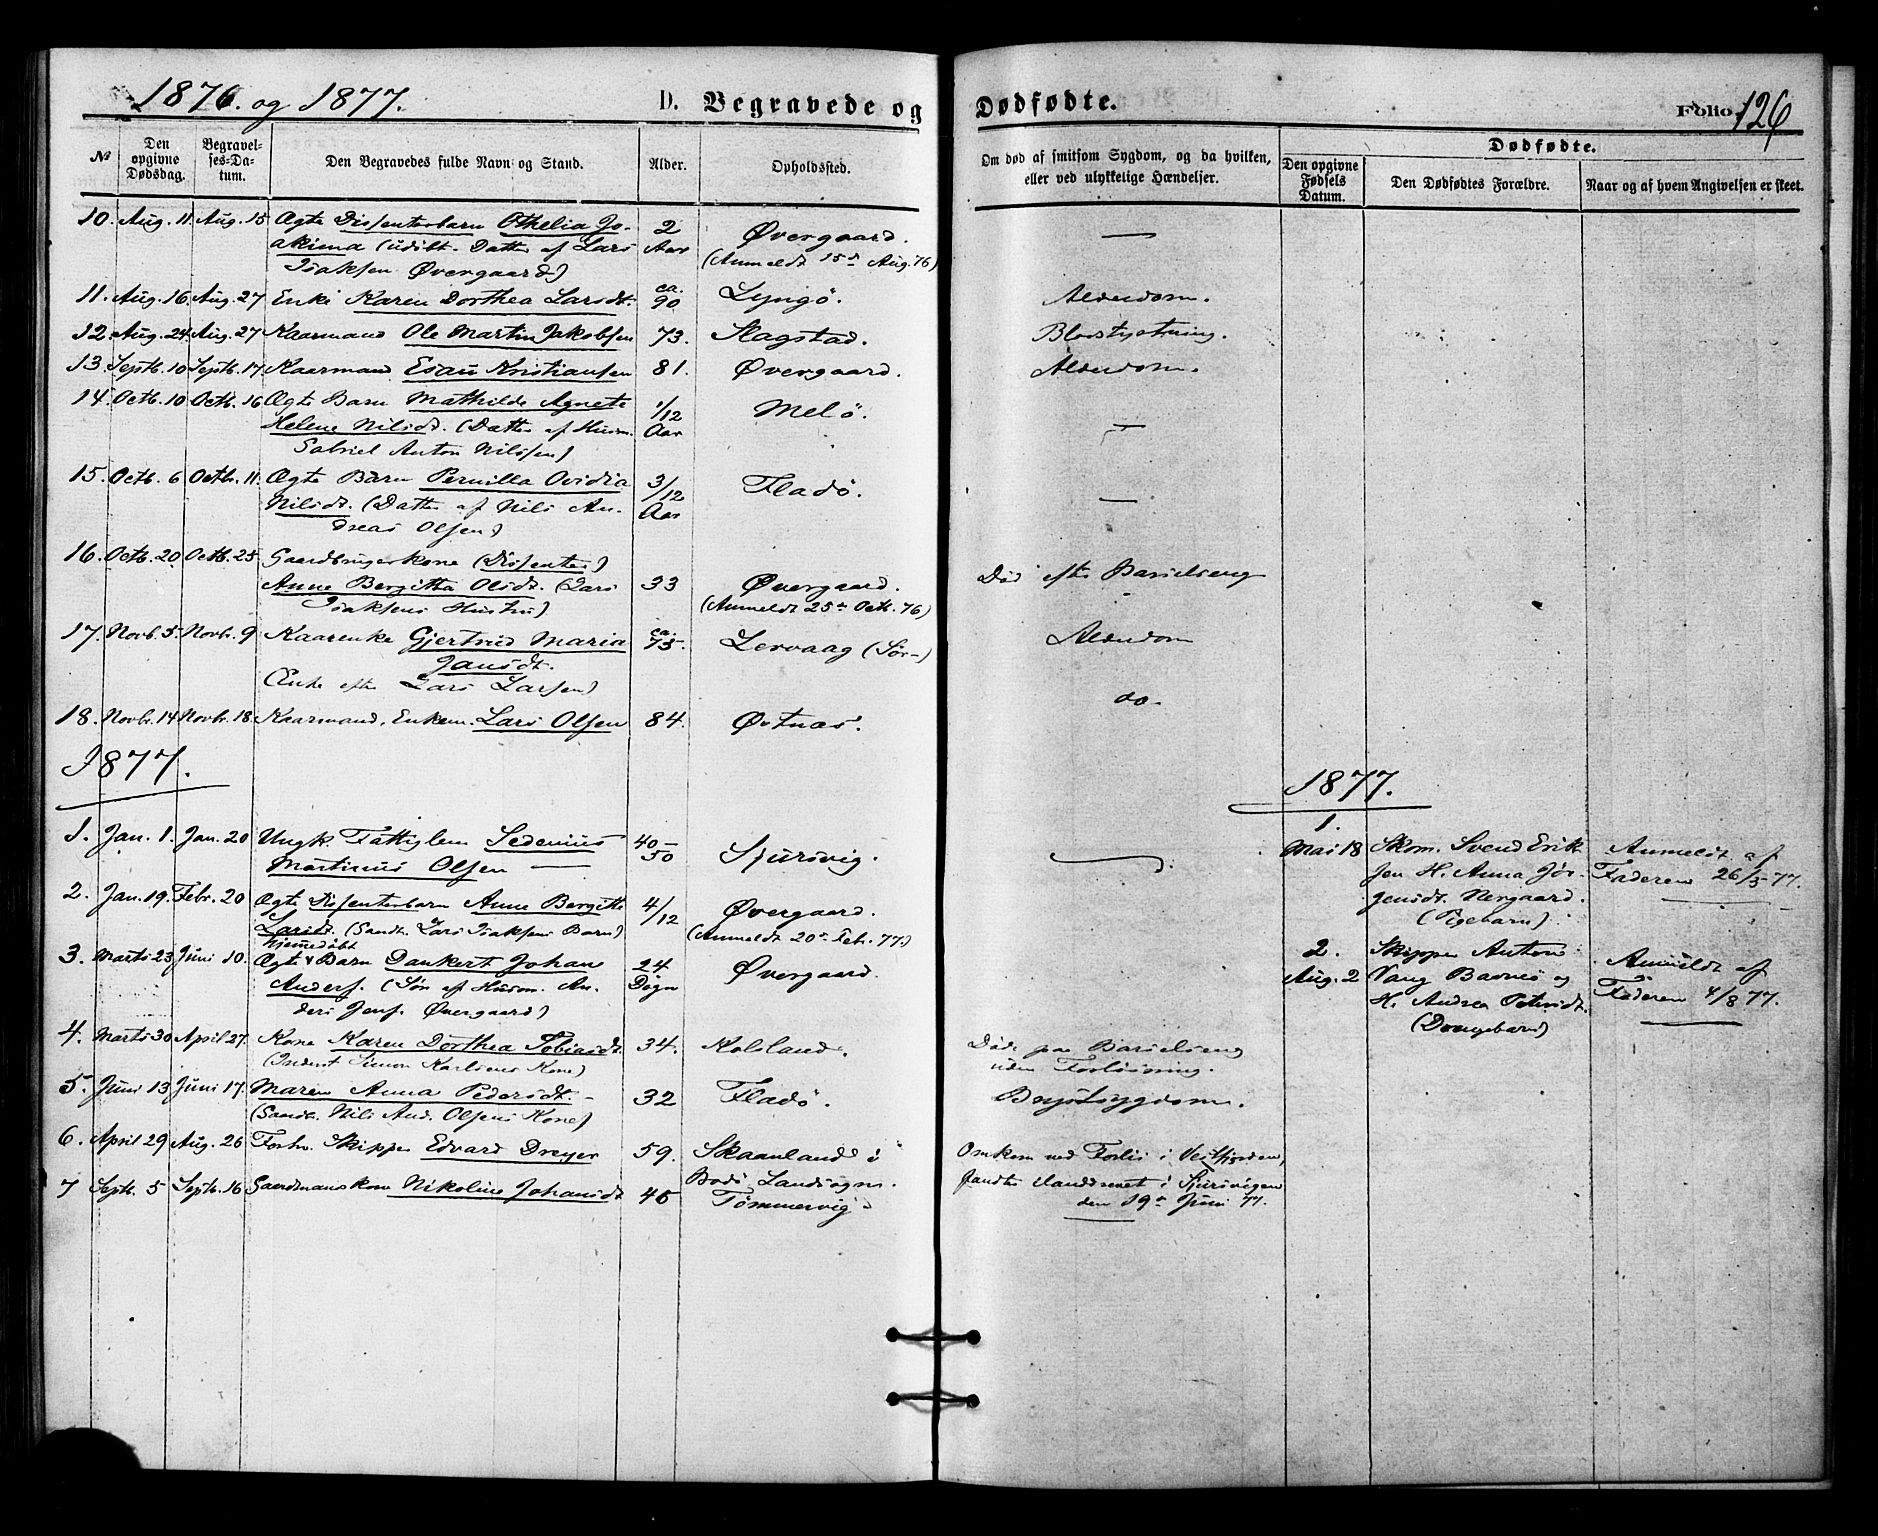 1876. og 1877.
D. Begravede og Dødfødte.
Folio 126
№
Den opgivne Dødsdag.
Begravelses-Datum.
Den Begravedes fulde Navn og Stand.
Alder.
Opholdssted.
Om død af smitsom Sygdom, og da hvilken, eller ved ulykkelige Hændelser.
Dødfødte.
Den opgivne Fødsels Datum.
Den Dødfødtes Forældre.
Naar og af hvem Angivelsen er skeet.
10. Aug. 11 Aug. 15 Ægte Dissenterbarn Othelia Jo- 2 Øvergaard. —
akima (udøbt. Datter af Lars Aar (Anmeldt 15de Aug. 76)
Isaksen Øvergaard)
11. Aug. 16 Aug. 27 Enke Karen Dorthea Larsdt. ca. 90 Lyngö. Alderdom.
12. Aug. 24 Aug. 27 Kaarmand Ole Martin Jakobsen 73. Slagstad. Blodstyrtning.
13 Septb. 10 Septb. 17 Kaarmand Esau Kristiansen 81. Øvergaard. Alderdom.
14. Octb. 10 Octb. 16 Ægte Barn Mathilde Agnete 1/12 Melö. —
Helene Nilsdt. (Datter af Husm. Aar
Gabriel Anton Nilssen)
15. Octb. 6 Octb. 11. Ægte Barn Pernilla Ovidia 3/12 Fladö. —
Nilsdt. (Datter af Nils An- Aar
dreas Olsen)
16. Octb. 20 Octb. 25 Gaardbrugerkone (Dissenter)
Anne Bergitta Olsdt. (Lars 33 Øvergaard. Död efter Barselseng
Isaksens Hustru) (Anmeldt 25de Octb. 76)
17. Novb. 5 Novb. 9 Kaarenke Gjertrud Maria ca. 75. Lervaag (Sör-) Alderdom
Jansdt.
(Enke efter Lars Larsen)
18. Novb. 14 Novb. 18. Kaarmand, Enkem. Lars Olsen 84. Østnæs. do.
1877.
1877.
1. Jan. 1. Jan. 20 Ungk. Fattiglem Sedenius 40- Sjursvig. —
Martinus Olsen — 50
2. Jan. 19. Febr. 20 Ægte Dissenterbarn Anne Bergitte 4/12 Øvergaard.
Larsdt. (Sandt. Lars Isaksens Barn) (Anmeldt 20de Feb. 77.)
hjemedøbt
3. Marts 23 Juni 10. Ægte Barn Dankert Johan 24 Øvergaard.
Anders. (Søn af Husm. An- Døgn
ders Jens. Øvergaard)
4. Marts 30 April 27. Kone Karen Dorthea Tobiasdt. 34. Kolsland. Döde paa Barselseng
(Inderst Simon Karlsens Kone) uden Forløsning.
5. Juni 13 Juni 17. Maren Anna Pedersdt. 32 Fladö. Brystsygdom.
(Sandt. Nils And. Olsens Kone)
6. April 29 Aug. 26 Forhv. Skipper Edvard Dreyer 59. Skaanland i Omkom ved Forlis i Vestfjorden,
Bodö Landsogn. fandtes ilanddrevet i Sjursvigen
den 19de Juni 77.
7 Septb. 5 Septb. 16 Gaardmanskone Nikoline Johansdt 45 Tømmervig
1.
Mai 18 Skom. Svend Erik- Anmeldt af
sen H. Anna Jör- Faderen 26/5 77.
gensdt. Nergaard.
(Pigebarn)
2. Skipper Anton Anmeldt af
Aug. 2 Vang Barnes og Faderen 4/8 77.
H. Andrea Petersdt.
(Drengebarn)